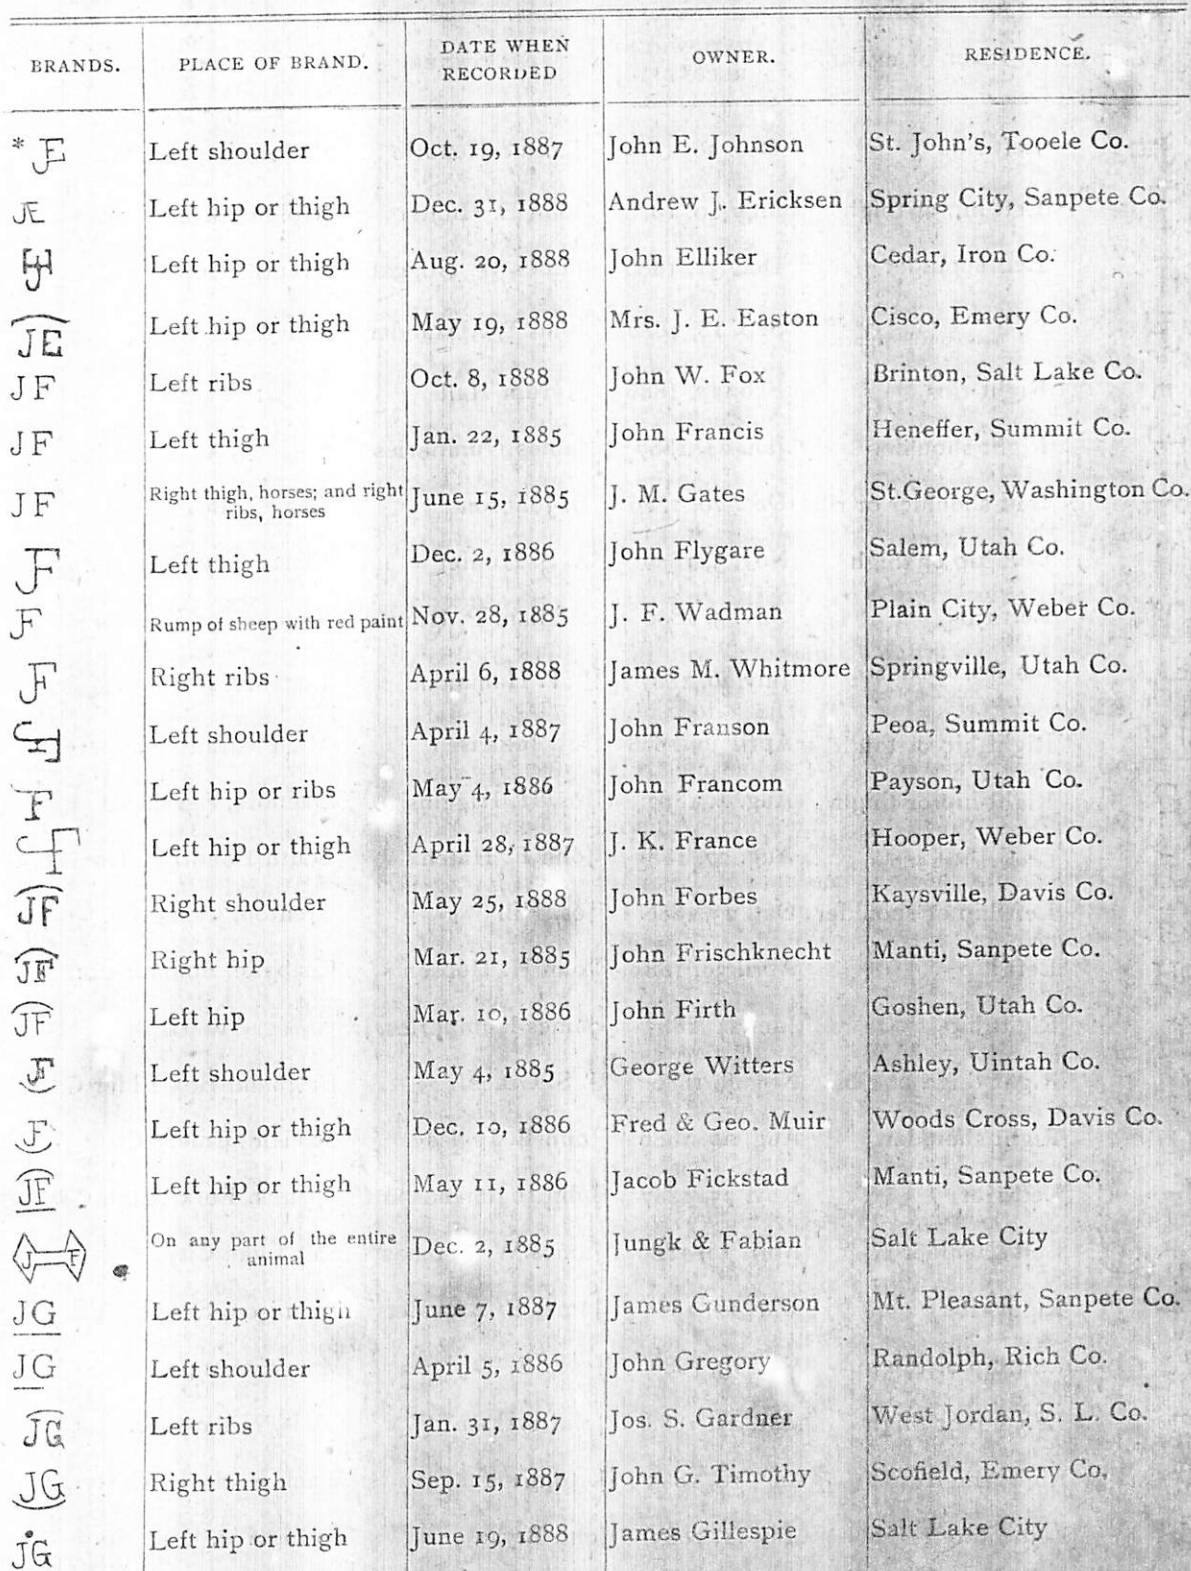 BRANDS. PLACE OF BRAND. DATE WHEN RECORDED OWNER. RESIDENCE.
* JE Left shoulder Oct. 19, 1887 John E. Johnson St. John's, Tooele Co.
JE Left hip or thigh Dec. 31, 1888 Andrew J. Ericksen Spring City, Sanpete Co.
Left hip or thigh Aug. 20, 1888 John Elliker Cedar, Iron Co.
JE Left hip or thigh May 19, 1888 Mrs. J. E. Easton Cisco, Emery Co.
JF Left ribs Oct. 8, 1888 John W. Fox Brinton, Salt Lake Co.
JF Left thigh Jan. 22, 1885 John Francis Heneffer, Summit Co.
JF Right thigh, horses; and right ribs, horses June 15, 1885 J. M. Gates St.George, Washington Co.
JF Left thigh Dec. 2, 1886 John Flygare Salem, Utah Co.
JF Rump of sheep with red paint Nov. 28, 1885 J. F. Wadman Plain City, Weber Co.
JF Right ribs April 6, 1888 James M. Whitmore Springville, Utah Co.
Left shoulder April 4, 1887 John Franson Peoa, Summit Co.
F Left hip or ribs May 4, 1886 John Francom Payson, Utah Co.
Left hip or thigh April 28, 1887 J. K. France Hooper, Weber Co.
JF Right shoulder May 25, 1888 John Forbes Kaysville, Davis Co.
JF Right hip Mar. 21, 1885 John Frischknecht Manti, Sanpete Co.
JF Left hip Mar. 10, 1886 John Firth Goshen, Utah Co.
JF Left shoulder May 4, 1885 George Witters Ashley, Uintah Co.
JF Left hip or thigh Dec. 10, 1886 Fred & Geo. Muir Woods Cross, Davis Co.
JF Left hip or thigh May 11, 1886 Jacob Fickstad Manti, Sanpete Co.
J F On any part of the entire animal Dec. 2, 1885 Jungk & Fabian Salt Lake City
JG Left hip or thigh June 7, 1887 James Gunderson Mt. Pleasant, Sanpete Co.
JG Left shoulder April 5, 1886 John Gregory Randolph, Rich Co.
JG Left ribs Jan. 31, 1887 Jos. S. Gardner West Jordan, S. L. Co.
JG Right thigh Sep. 15, 1887 John G. Timothy Scofield, Emery Co.
JG Left hip or thigh June 19, 1888 James Gillespie Salt Lake City